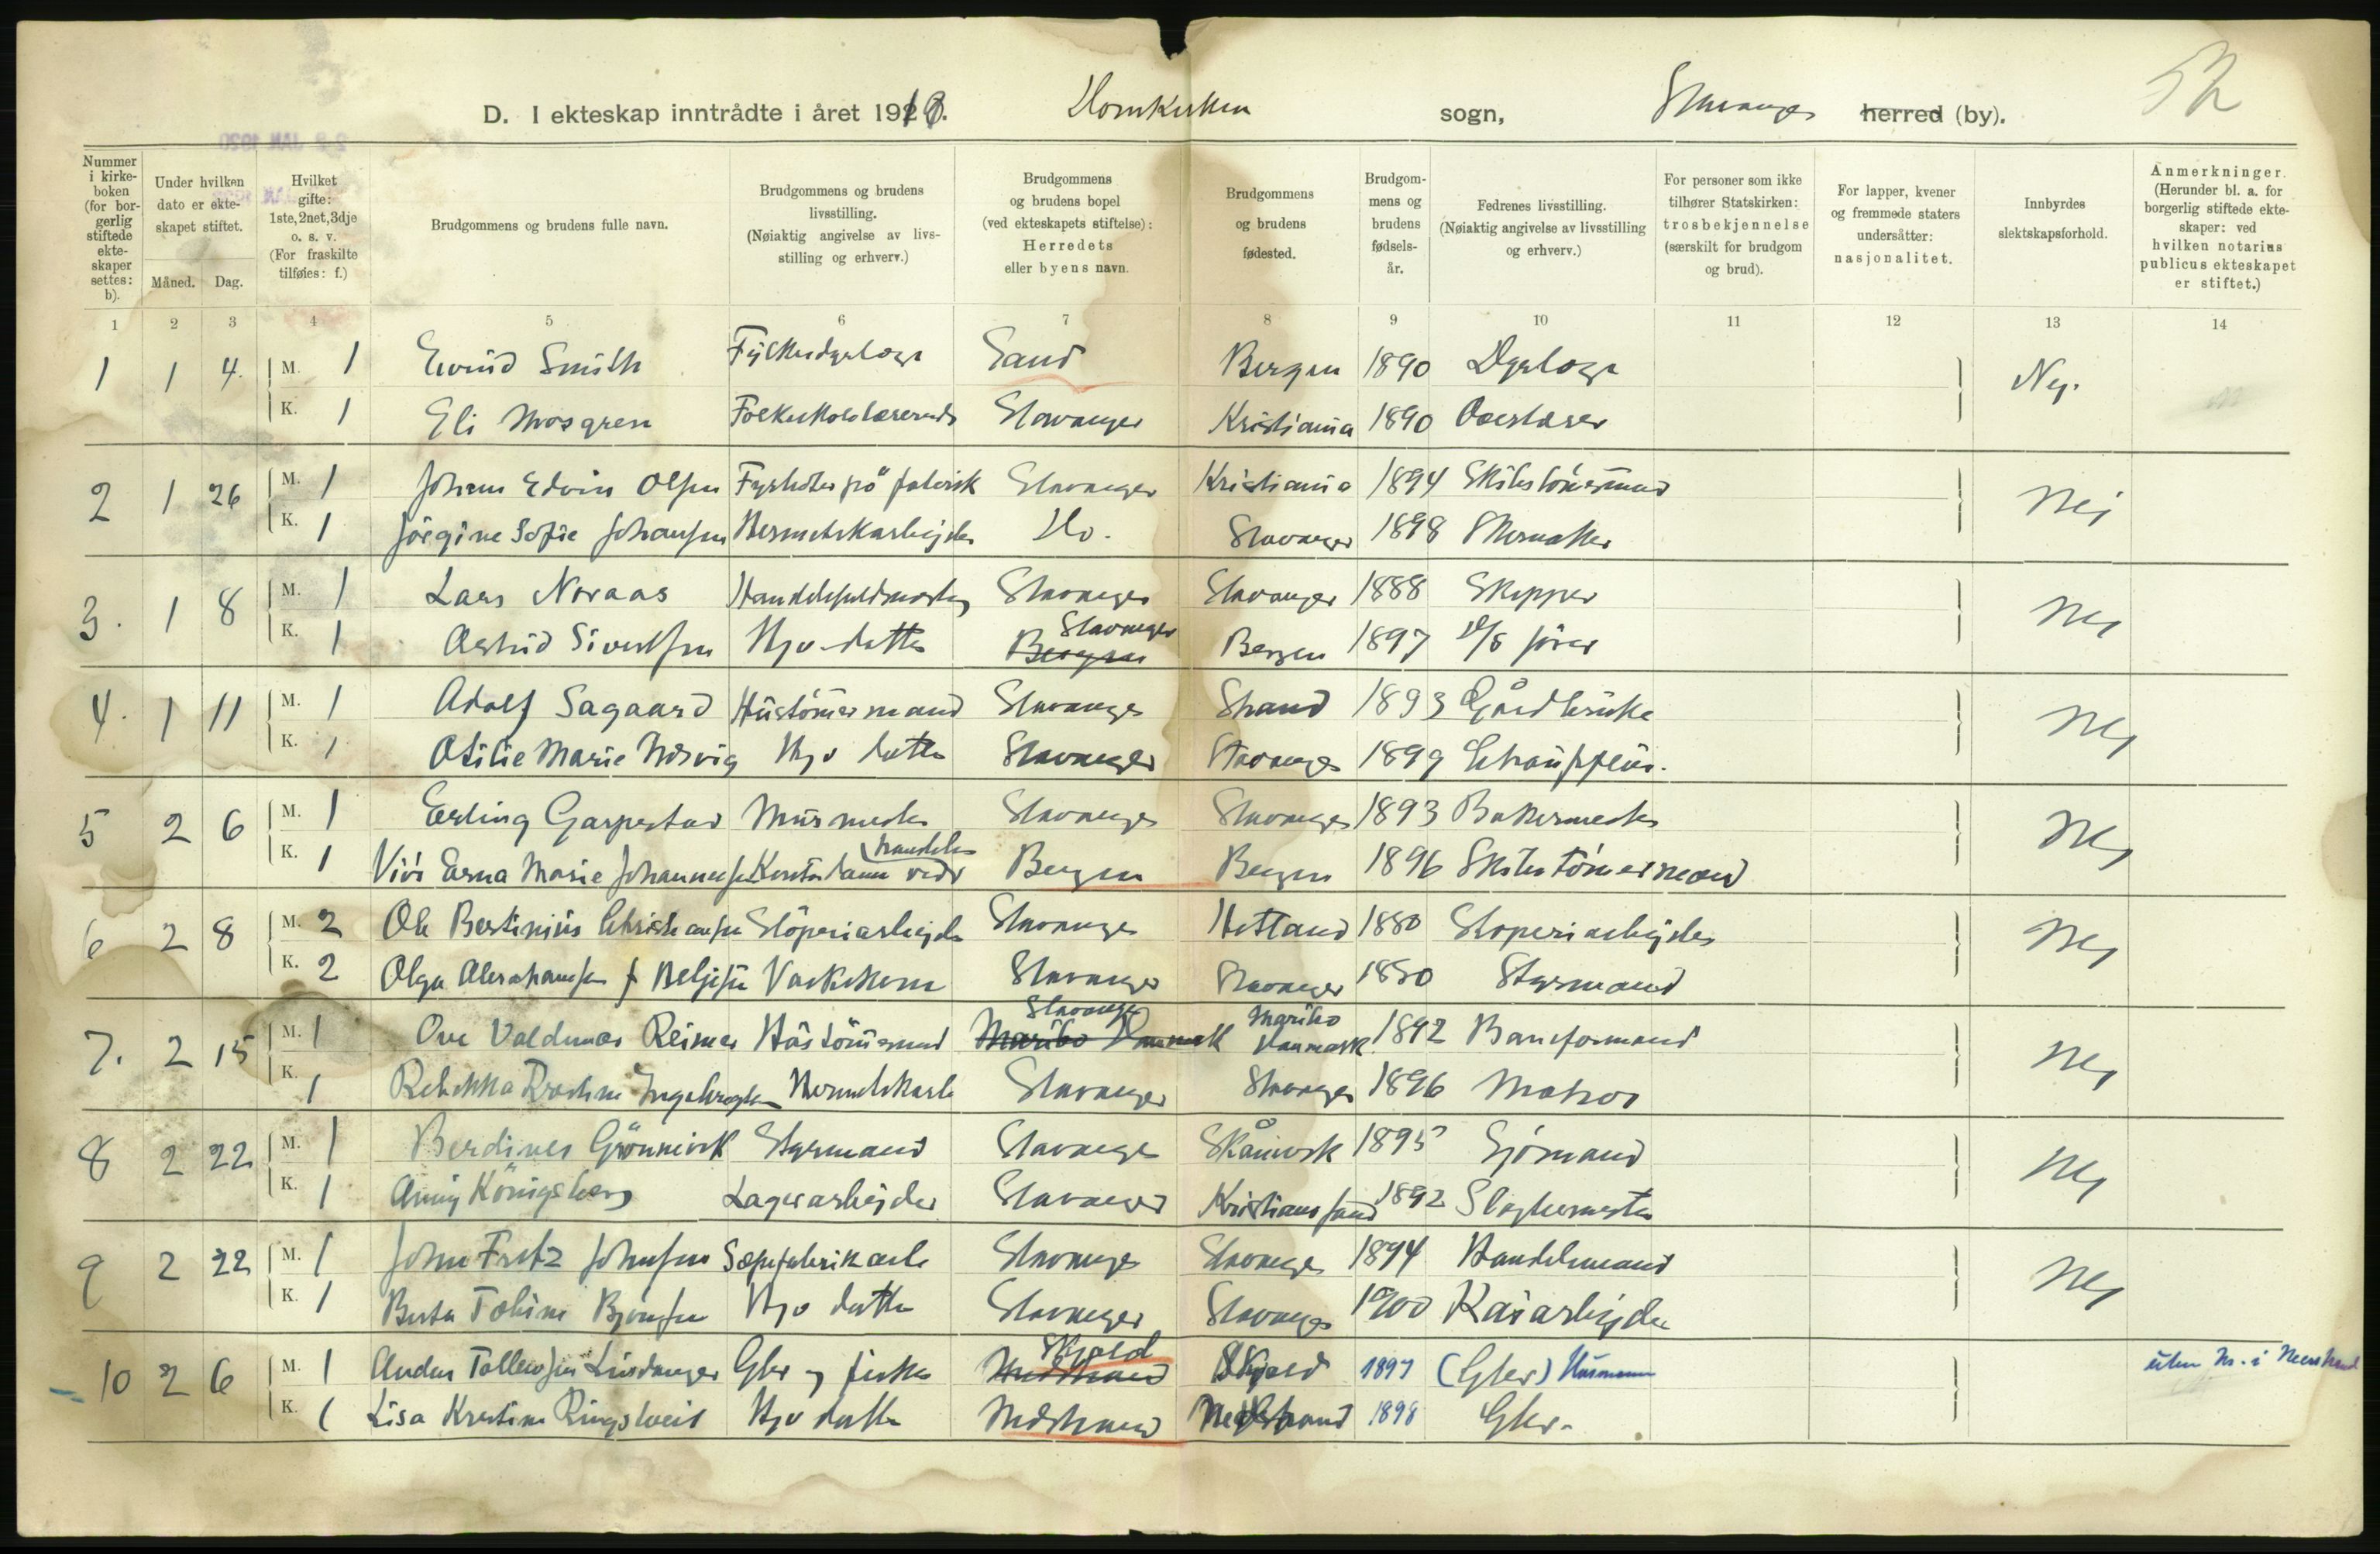 D. I ekteskap inntrådte i året 19 Domkirken sogn, Stavanger herred (by). 52
Nummer i kirkeboken (for borgerlig stiftede ekteskaper settes: b).
Under hvilken dato er ekteskapet stiftet.
Måned. Dag.
Hvilket gifte: 1ste, 2net, 3dje o. s. v. (For fraskilte tilføies: f.)
Brudgommens og brudens fulle navn.
Brudgommens og brudens livsstilling. (Nøiaktig angivelse av livsstilling og erhverv.)
Brudgommens og brudens bopel (ved ekteskapets stiftelse): Herredets eller byens navn.
Brudgommens og brudens fødested.
Brudgommens og brudens fødselsår.
Fedrenes livsstilling. (Nøiaktig angivelse av livsstilling og erhverv.)
For personer som ikke tilhører Statskirken: trosbekjennelse (særskilt for brudgom og brud).
For lapper, kvener og fremmede staters undersåtter: nasjonalitet.
Innbyrdes slektskapsforhold.
Anmerkninger. (Herunder bl. a. for borgerlig stiftede ekteskaper: ved hvilken notarius publicus ekteskapet er stiftet.)
1 2 3 4 5 6 7 8 9 10 11 12 13 14
1 1 4 M. 1 Eivind Smith Fylkesdyrlæge Sand Bergen 1890 Dyrlæge Nej.
K. 1 Eli Mosgren Folkeskolelærerinde Stavanger Kristiania 1890 Overlærer
2 1 26 M. 1 Johan Edvin Olsen Fyrbøter på fabrik Stavanger Kristiania 1894 Skibstömermand Nej
K. 1 Jörgine Sofie Johansen Hermetikarbejder Do. Stavanger 1898 Skomaker
3. 1 8 M. 1 Lars Noraas Stavanger Stavanger 1888 Skipper Nej
K. 1 Astrid Sivertsen Hjv. datter Stavanger Bergen Bergen 1897 förer
4. 1 11 M. 1 Adolf Sagaard Hustömermand Stavanger Strand 1893 Gårdbruker Nej
K. 1 Otilie Marie Hjv datter Stavanger Stavanger 1899
5 2 6 M. 1 Erling Garpestad Murmester Stavanger Stavanger 1893 Bakermester Nej
K. 1 Vivi Erna Marie Johannesen Bergen Bergen 1896 Skibstömermand
6 2 8 M. 2 Ole Bertinius Christiansen Stöperiarbejder Stavanger Hetland 1880 Støperiarbejder Nej
K. 2 Olga Abrahamsen f Vaskekone Stavanger Stavanger 1880 Styrmand
7. 2 15 M. 1 Ove Valdemar Reimer Hustömermand Stavanger Maribo Danmark Maribo Danmark 1892 Baneformand Nej
K. 1 Rebekka Ingebregtsen Hermetikarb Stavanger Stavanger 1896 Matros
8 2 22 M. 1 Berdines Grönnevik Styrmand Stavanger Skånevik 1895 Sjömand Nej
K. 1 Anny Königsberg Lagerarbejder Stavanger Kristiansand 1892 Slagtermester
9 2 22 M. 1 John Fritz Johnsen Sæpefabrikarb Stavanger Stavanger 1894 Handelsmand Nej
K. 1 Berta Tobine Hjv datter Stavanger Stavanger 1900 Kaiarbejder
10 2 6 M. 1 Anders Tollevsen Gbr og fisker Skjold Nedstrand Skjold 1897 (Gbr) Husmann uten Nr. i Nedstrand
K. 1 Lisa Kristine Hjv datter Nedstrand Nedstrand 1898 Gbr.